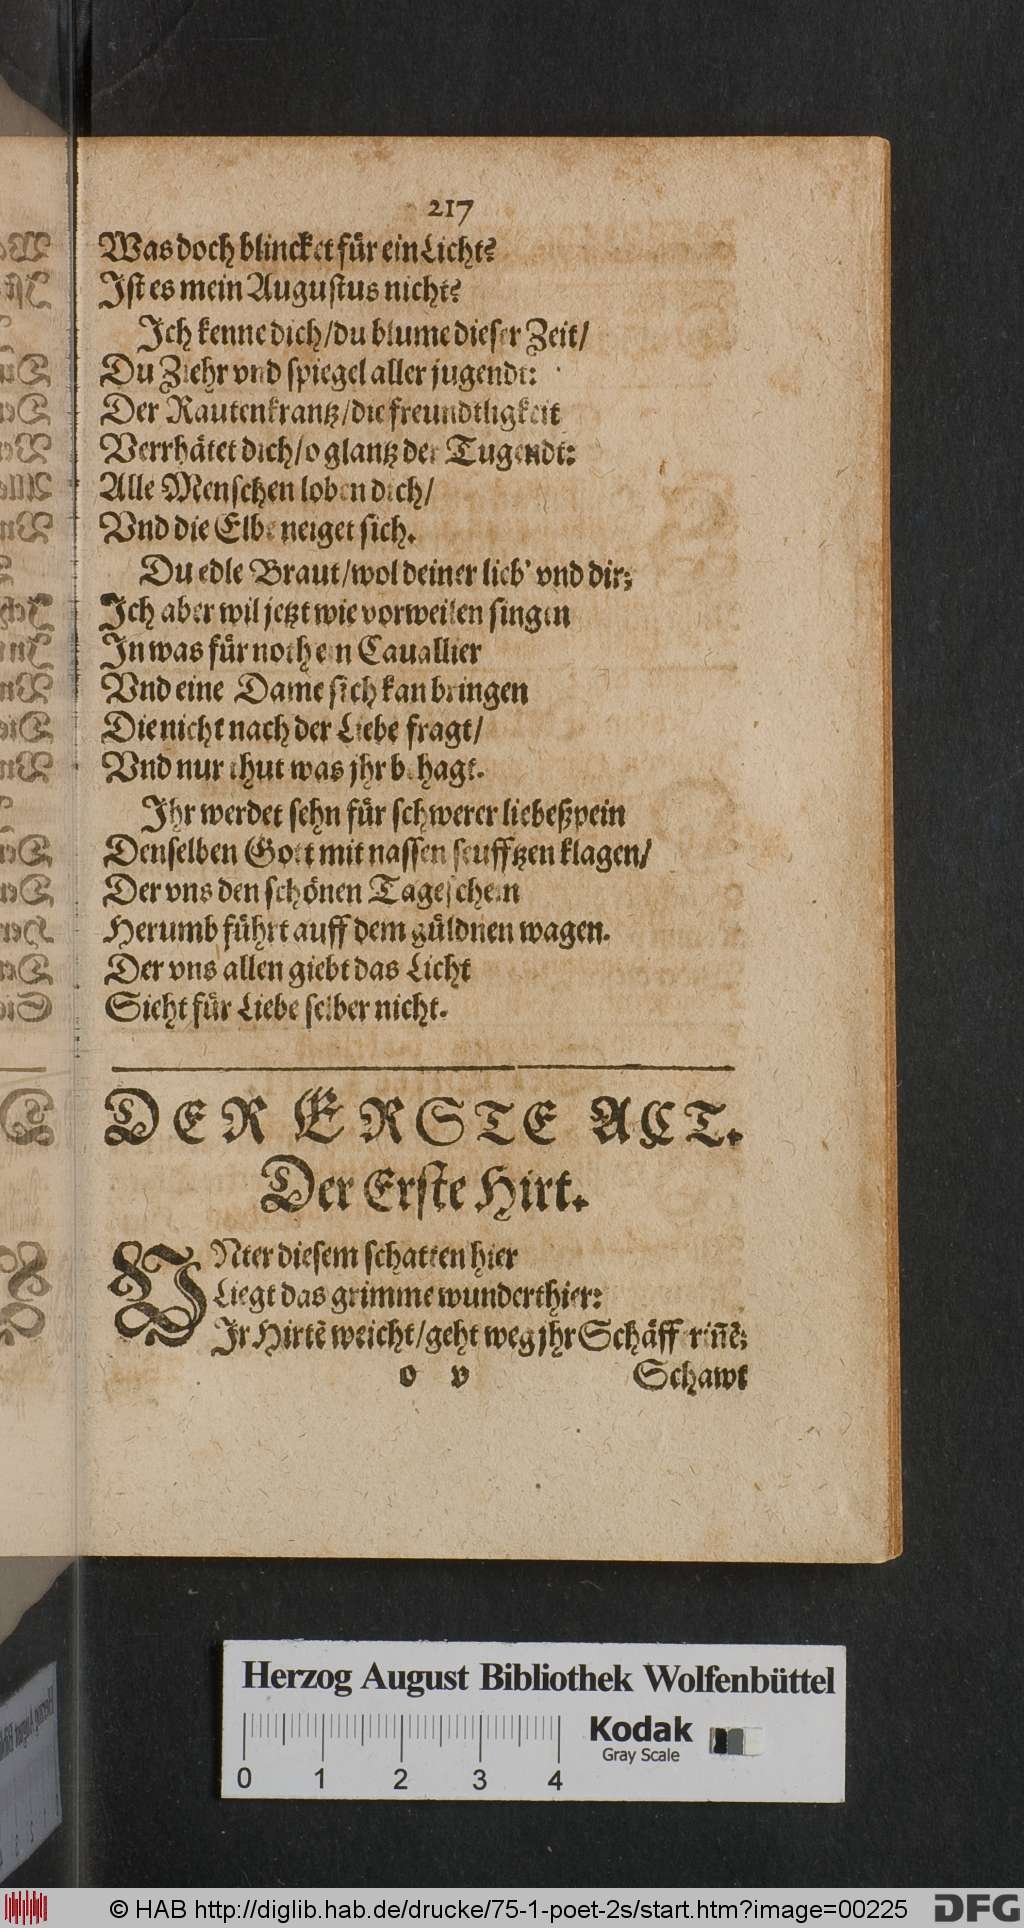 217
Was doch blincket fuͤr ein Licht?
Ist es mein Augustus nicht?
Ich kenne dich/du blume dieser Zeit/
Du Ziehr vnd spiegel aller jugendt:
Der Rautenkrantz/die freundtligkeit
Verrhaͤtet dich/o glantz der Tugendt:
Alle Menschen loben dich/
Vnd die Elbe neiget sich.
Du edle Braut/wol deiner lieb' vnd dir;
Ich aber wil jetzt wie vorweilen singen
In was fuͤr noth ein Cauallier
Vnd eine Dame sich kan bringen
Die nicht nach der Liebe fragt/
Vnd nur thut was jhr behagt.
Ihr werdet sehn fuͤr schwerer liebeßpein
Denselben Gott mit nassen seufftzen klagen/
Der vns den schoͤnen Tageschein
Herumb fuͤhrt auff dem guͤldnen wagen.
Der vns allen giebt das Licht
Sieht fuͤr Liebe selber nicht.
DER ERSTE ACT.
Der Erste Hirt.
VNter diesem schatten hier
Liegt das grimme wunderthier:
Jr Hirtē weicht/geht weg jhr Schaͤfferin̄ē;
o v Schawt
Herzog August Bibliothek Wolfenbüttel
Kodak
Gray Scale
0 1 2 3 4
© HAB http://diglib.hab.de/drucke/75-1-poet-2s/start.htm?image=00225
DFG